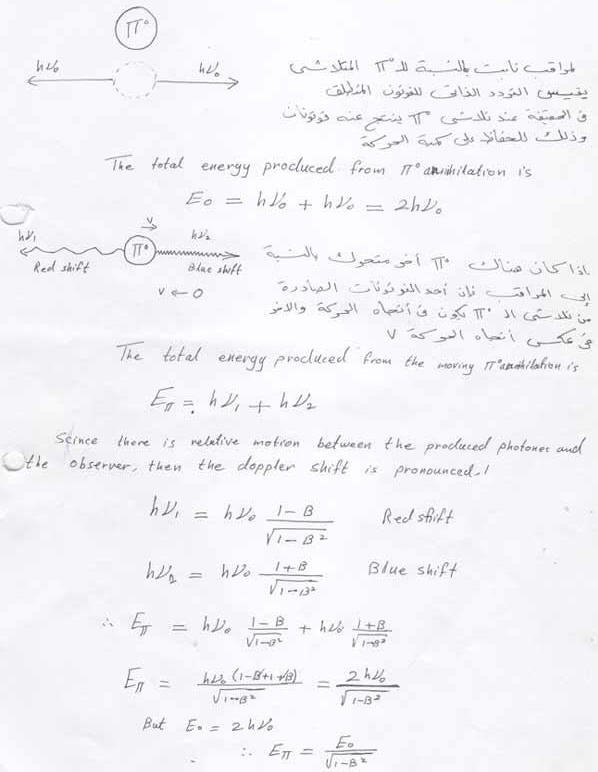 Π°
hν₀ hν₀
لمراقب ثابت بالنسبة للـ Π° المتلاشي
يقيس التردد الذاتي للفوتون المنطلق
في الحقيقة عند تلاشي Π° ينتج عنه فوتونان
وذلك للحفاظ على كمية الحركة
The total energy produced from Π° annihilation is
E₀ = hν₀ + hν₀ = 2hν₀
v
hν₁ Π° hν₂
Red shift Blue shift
v ← O
إذا كان هناك Π° آخر متحرك بالنسبة
إلى المراقب فإن أحد الفوتونات الصادرة
من تلاشي الـ Π° تكون في أتجاه الحركة والآخر
في عكس أتجاه الحركة v
The total energy produced from the moving Π° annihilation is
E_Π = hν₁ + hν₂
Scince there is relative motion between the produced photones and
the observer, then the doppler shift is pronounced.!
hν₁ = hν₀ (1-B)/√(1-B²) Red shift
hν₂ = hν₀ (1+B)/√(1-B²) Blue shift
∴ E_Π = hν₀ (1-B)/√(1-B²) + hν₀ (1+B)/√(1-B²)
E_Π = hν₀(1-B+1+B)/√(1-B²) = 2hν₀/√(1-B²)
But E₀ = 2hν₀
∴ E_Π = E₀/√(1-B²)